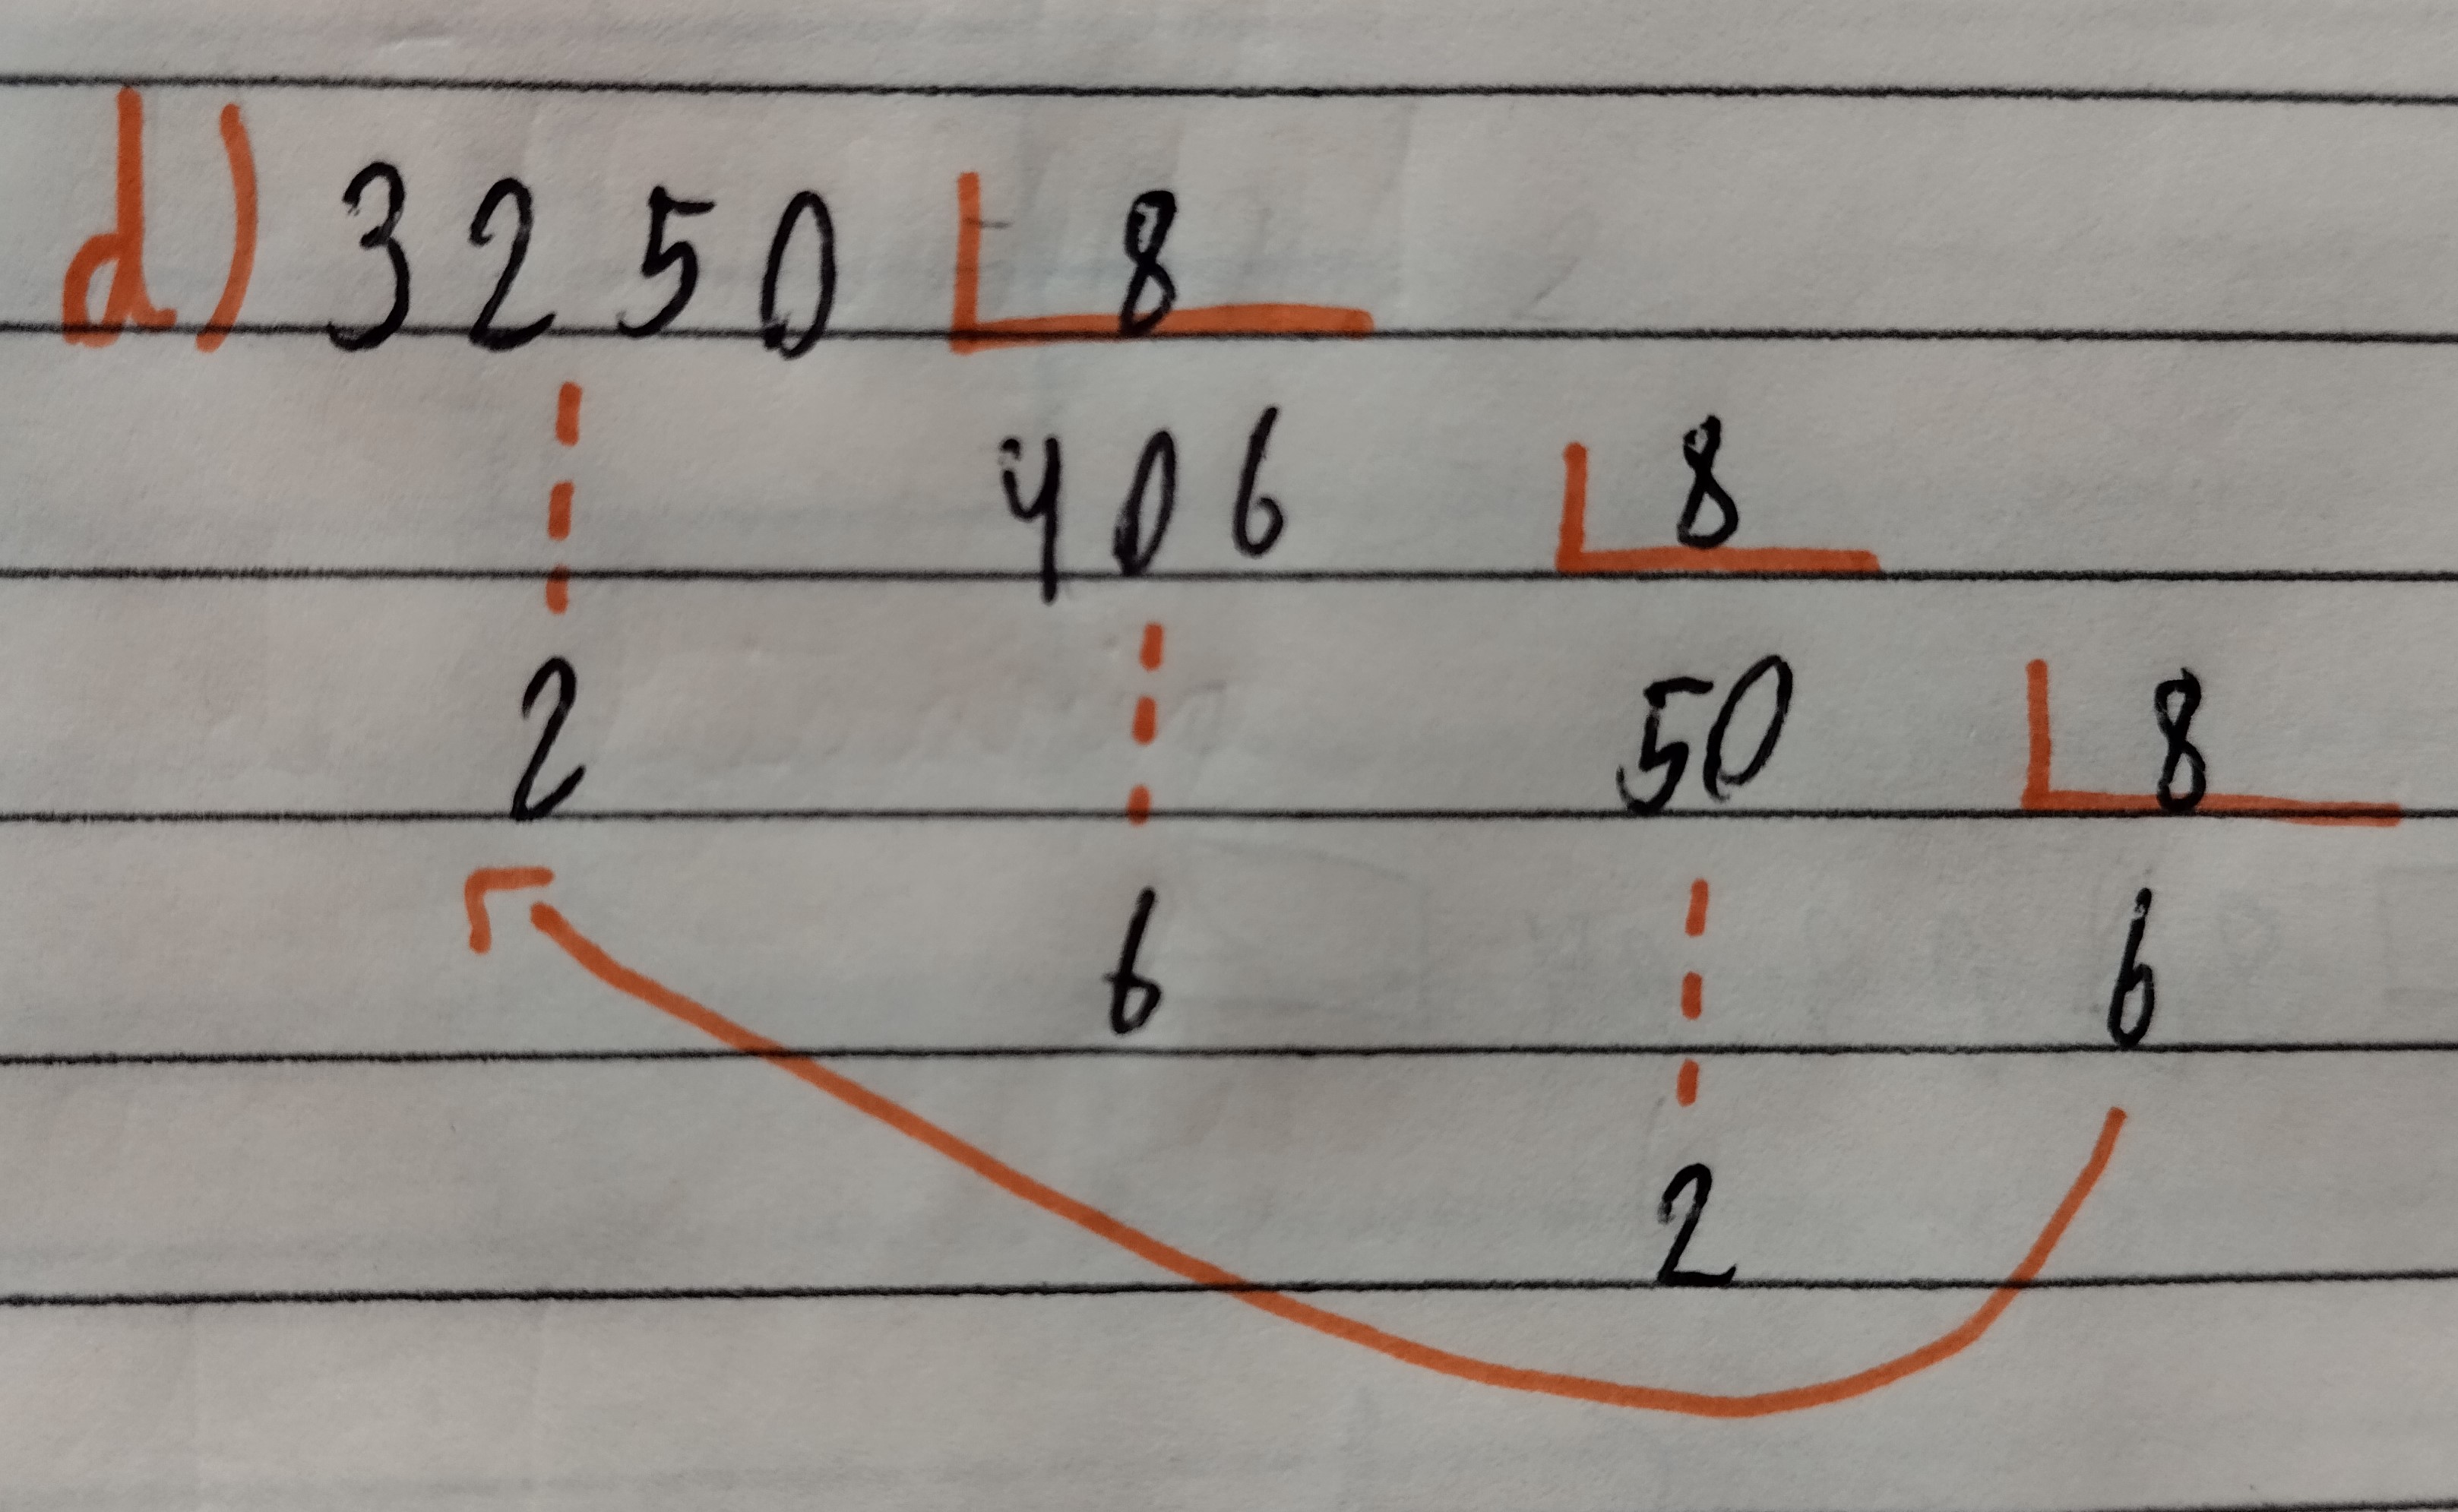 d) 3250 8
406 8
2 50 8
6 6
2